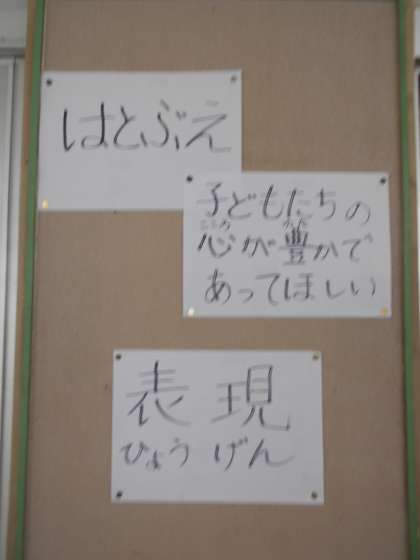 はとぶえ
子どもたちの
こころ ゆた
心が豊かで
あってほしい
表現
ひょうげん